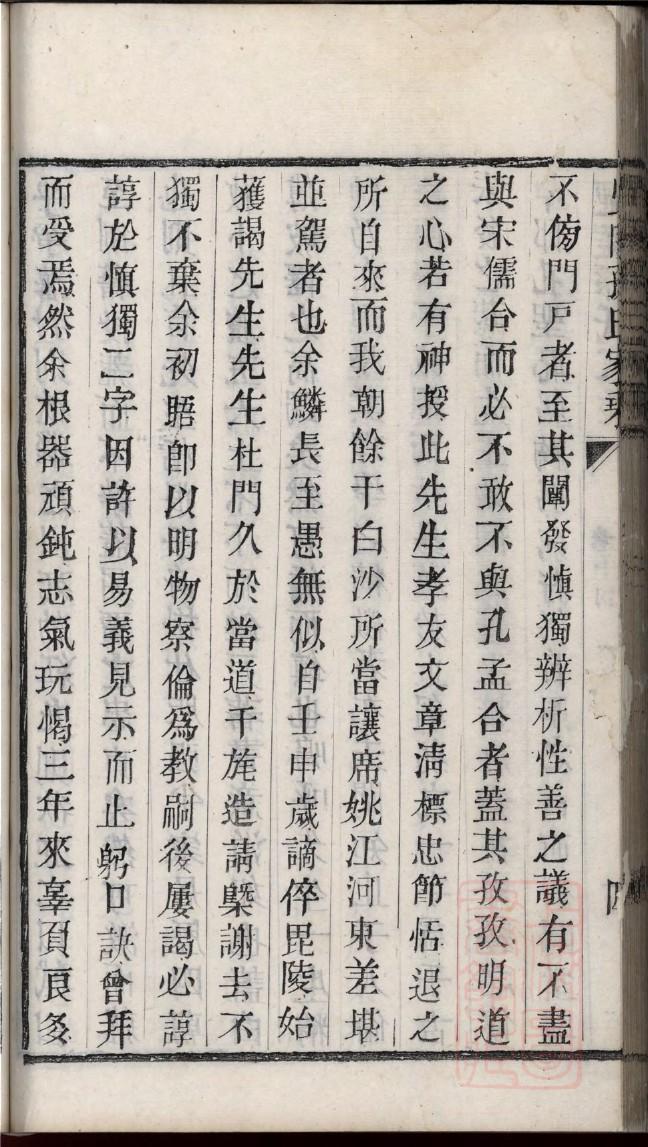 孫氏家乘
不傍門戸者至其闡發愼獨辨析性善之議有不盡
與宋儒合而必不敢不與孔孟合者蓋其孜孜明道
之心若有神授此先生孝友文章淸標忠節恬退之
所自來而我朝餘干白沙所當讓席姚江河東差堪
並駕者也余鱗長至愚無似自壬申歲謫倅毘陵始
獲謁先生先生杜門久於當道干旄造請槩謝去不
獨不棄余初晤卽以明物察倫爲教嗣後屢謁必諄
諄於愼獨二字因許以易義見示而止躬口訣曾拜
而受焉然余根器頑鈍志氣玩愒三年來辜負良多